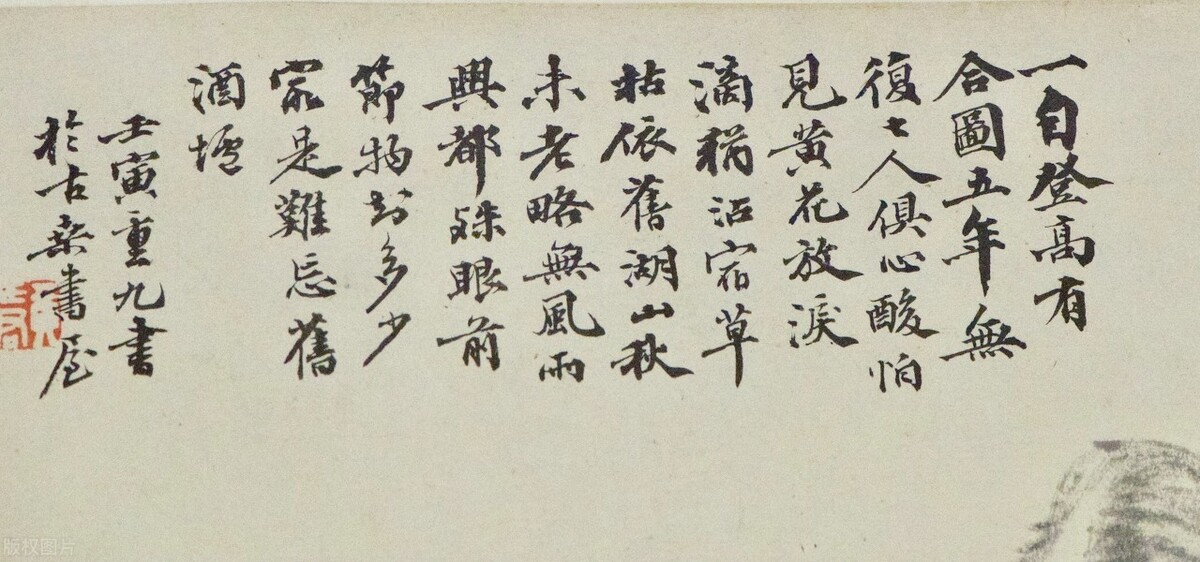 一自登高有
合圖五年無
復七人俱心酸怕
見黃花放淚
滴猶沾宿草
枯依舊湖山秋
未老略無風雨
興都殊眼前
節物知多少
最是難忘舊
酒壚
壬寅重九書
於古桑書屋
版权图片